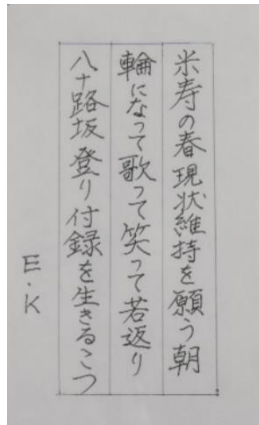 米寿の春現状維持を願う朝
輪になって歌って笑って若返り
八十路坂登り付録を生きるこつ
E.K